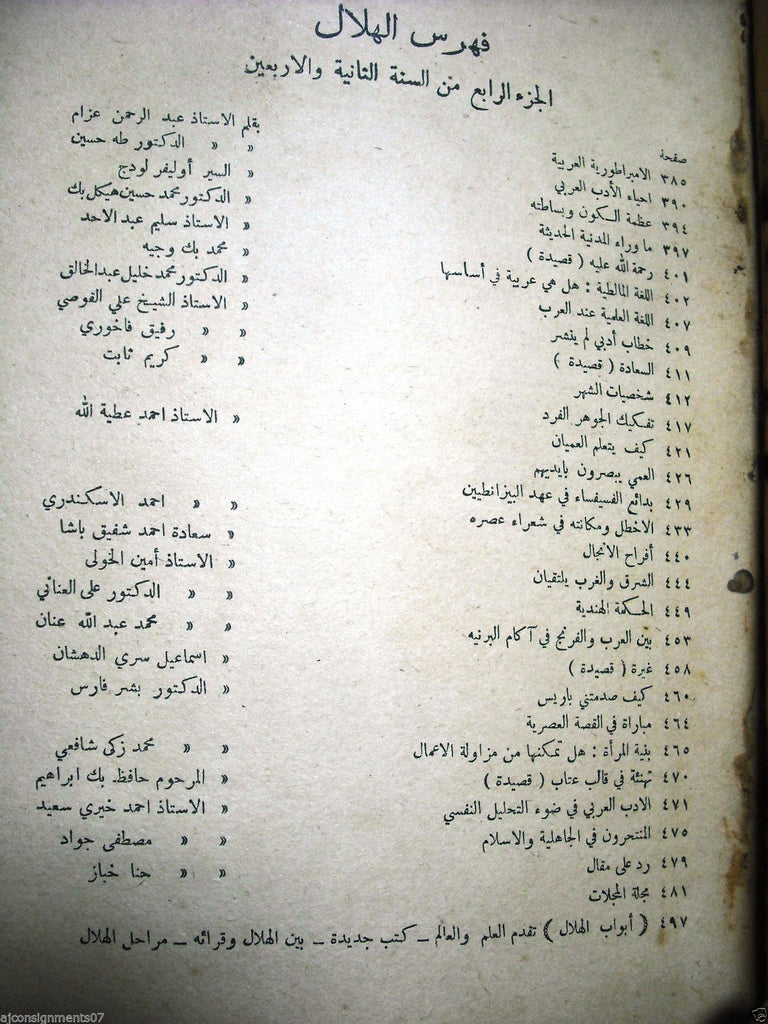 فهرس الهلال
الجزء الرابع من السنة الثانية والاربعين
صفحة
٣٨٥ الامبراطورية العربية بقلم الاستاذ عبد الرحمن عزام
٣٩٠ احياء الأدب العربي » » الدكتور طه حسين
٣٩٤ عظمة الكون وبساطته » السير أوليفر لودج
٣٩٧ ما وراء المدنية الحديثة » الدكتور محمد حسين هيكل بك
٤٠١ رحمة الله عليه ( قصيدة ) » الاستاذ سليم عبد الاحد
٤٠٢ اللغة المالطية : هل هي عربية في أساسها » محمد بك وجيه
٤٠٧ اللغة العلمية عند العرب » الدكتور محمد خليل عبد الخالق
٤٠٩ خطاب أدبي لم ينشر » الاستاذ الشيخ علي القوصي
٤١١ السعادة ( قصيدة ) » » رفيق فاخوري
٤١٢ شخصيات الشهر » » كريم ثابت
٤١٧ تفكيك الجوهر الفرد
٤٢١ كيف يتعلم العميان » الاستاذ احمد عطية الله
٤٢٦ العمي يبصرون بايديهم
٤٢٩ بدائع الفسيفساء في عهد البيزانطيين
٤٣٣ الاخطل ومكانته في شعراء عصره » » احمد الاسكندري
٤٤٠ أفراح الانجال » سعادة احمد شفيق باشا
٤٤٤ الشرق والغرب يلتقيان » الاستاذ أمين الخولى
٤٤٩ الحكمة الهندية » » الدكتور على العناني
٤٥٣ بين العرب والفرنج في آكام البرنيه » » محمد عبد الله عنان
٤٥٨ غيرة ( قصيدة ) » اسماعيل سري الدهشان
٤٦٠ كيف صدمتني باريس » الدكتور بشر فارس
٤٦٤ مباراة في القصة العصرية
٤٦٥ بنية المرأة : هل تمكنها من مزاولة الاعمال » » محمد زكى شافعي
٤٧٠ تهنئة في قالب عتاب ( قصيدة ) » المرحوم حافظ بك ابراهيم
٤٧١ الادب العربي في ضوء التحليل النفسي » الاستاذ احمد خيري سعيد
٤٧٥ المنتحرون في الجاهلية والاسلام » » مصطفى جواد
٤٧٩ رد على مقال » » حنا خباز
٤٨١ مجلة المجلات
٤٩٧ ( أبواب الهلال ) تقدم العلم والعالم – كتب جديدة – بين الهلال وقرائه – مراحل الهلال
ajconsignments07